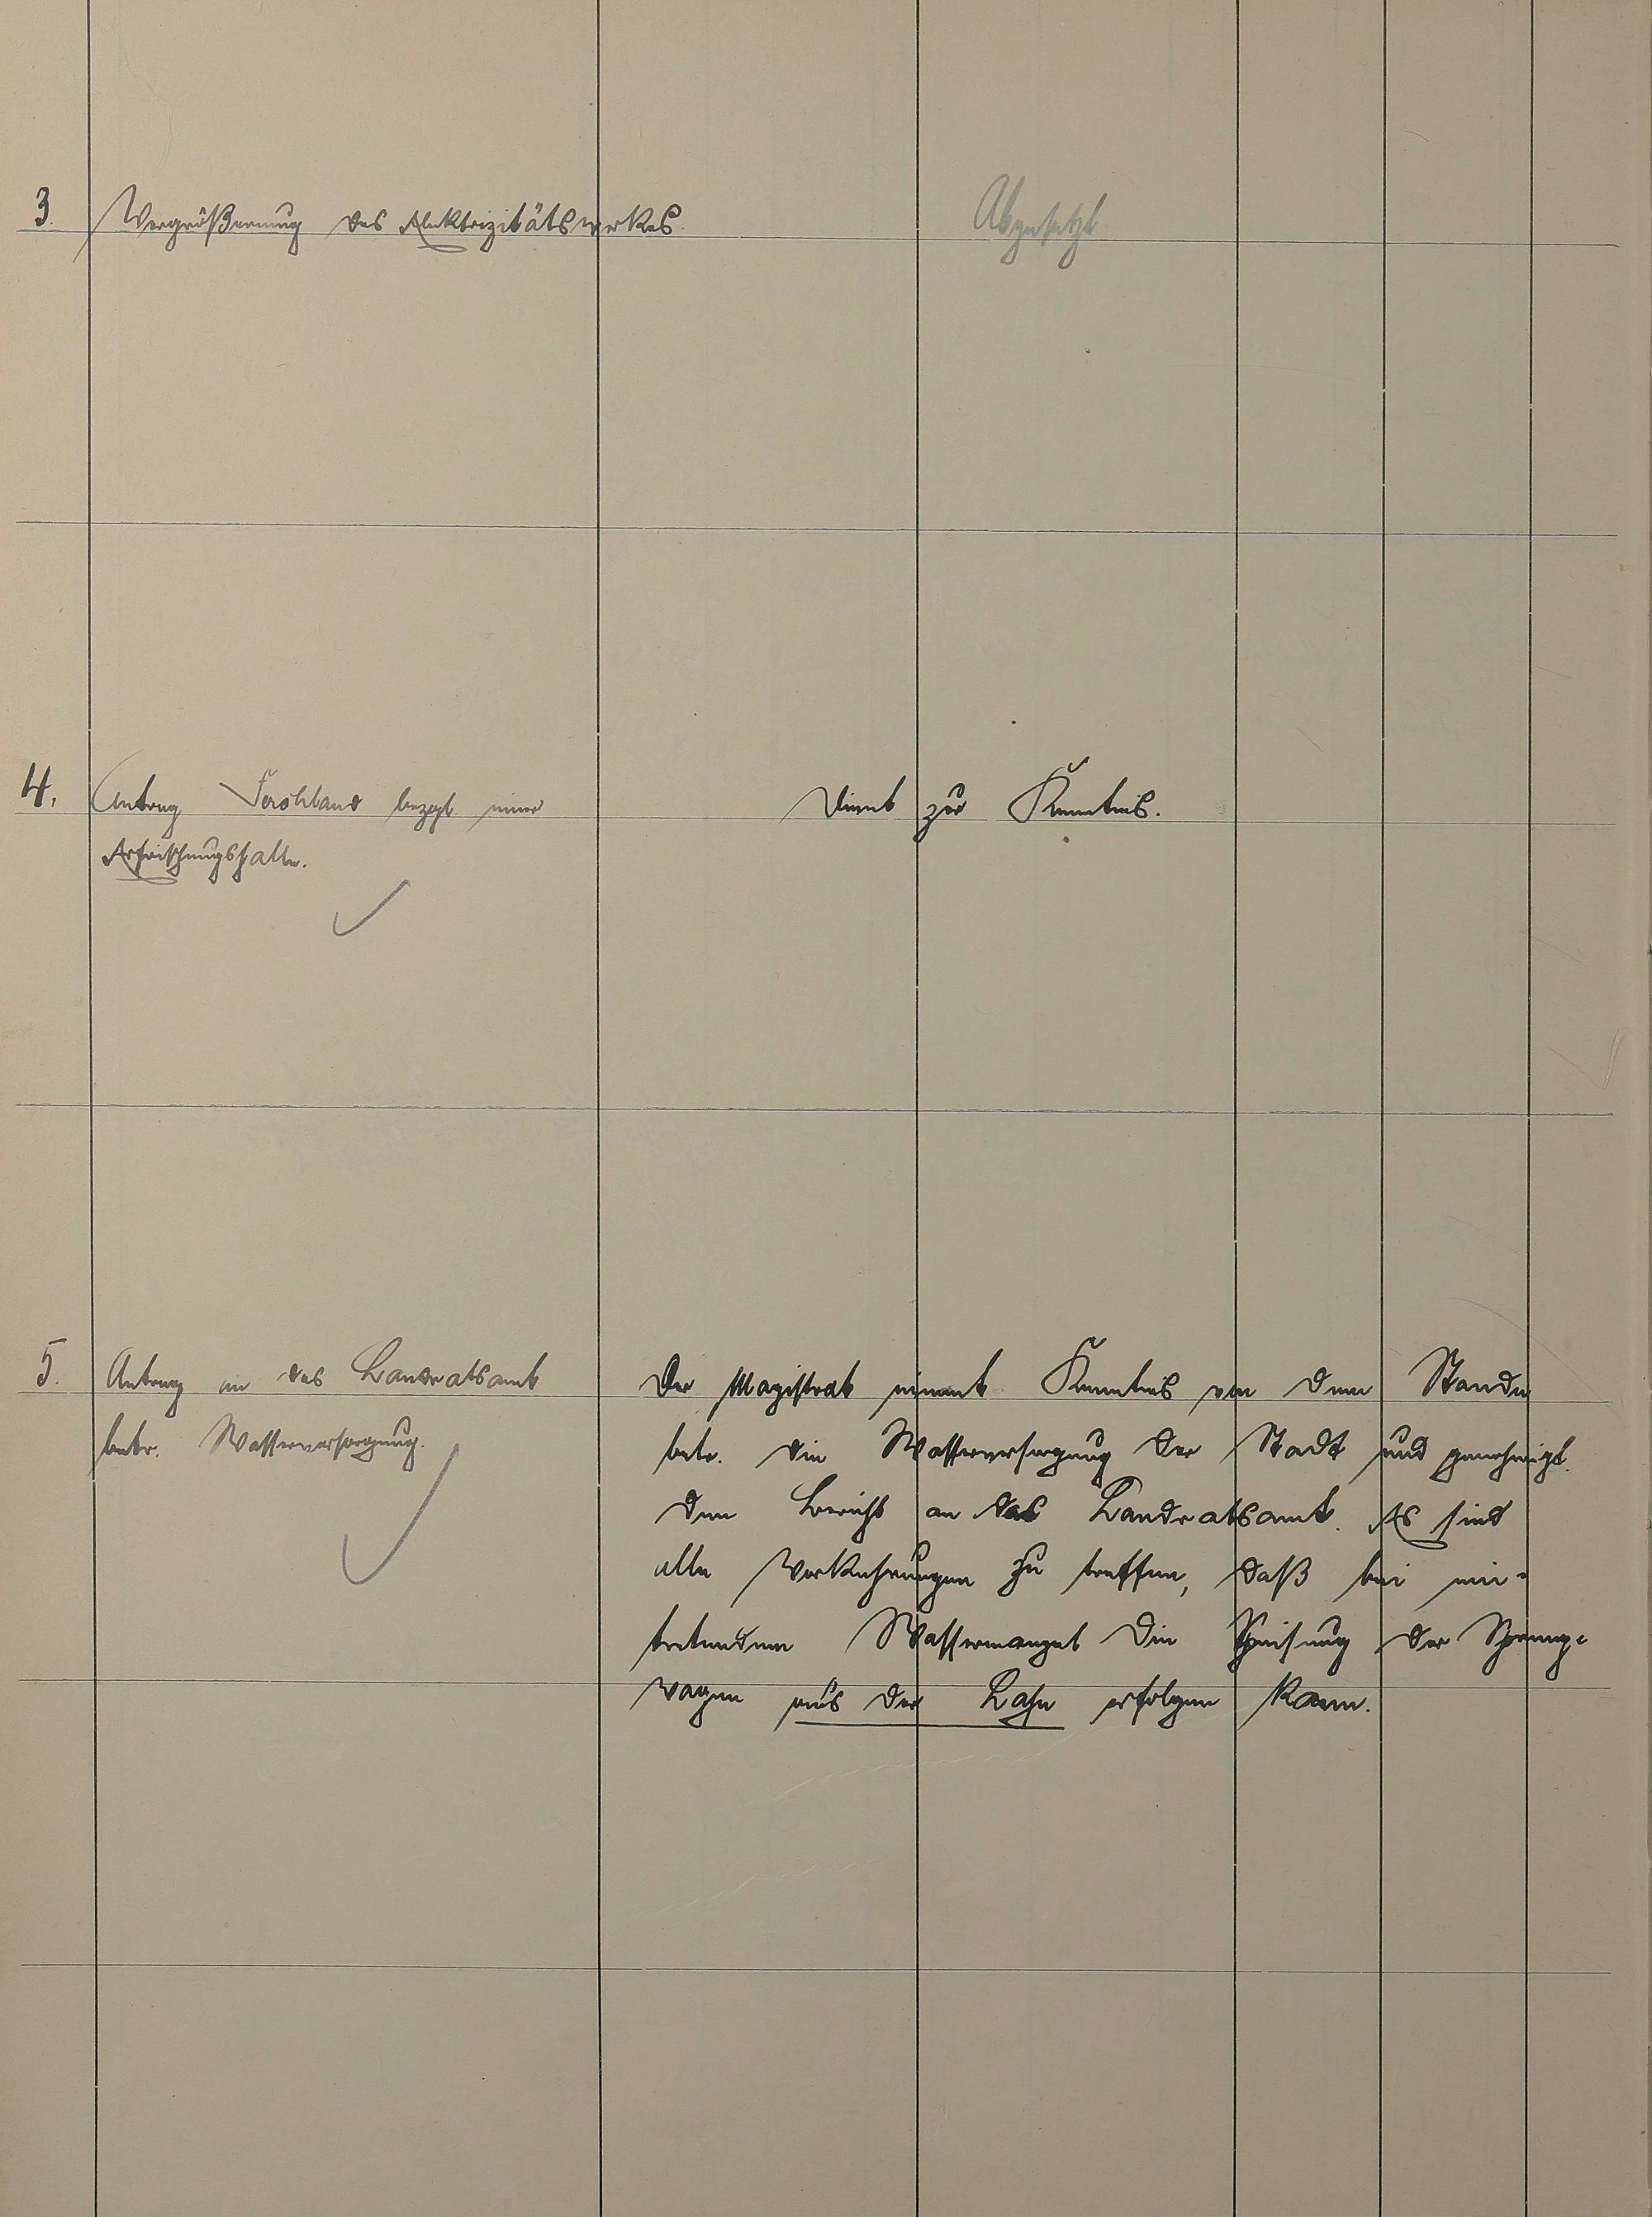 3. Vergrößerung des Elektrizitätswerkes.
Abgesetzt
4. Antrag bezgl. einer
Erfrischungshalle.
Dient zur Kenntnis.
5. Antrag an das Landratsamt
betr. Wasserversorgung.
Der Magistrat nimmt Kenntnis von dem Stande
betr. die Wasserversorgung der Stadt und genehmigt
den Bericht an das Landratsamt. Es sind
alle Vorkehrungen zu treffen, daß bei ein-
tretendem Wassermangel die Speisung der Spreng-
wagen aus der Lahn erfolgen kann.